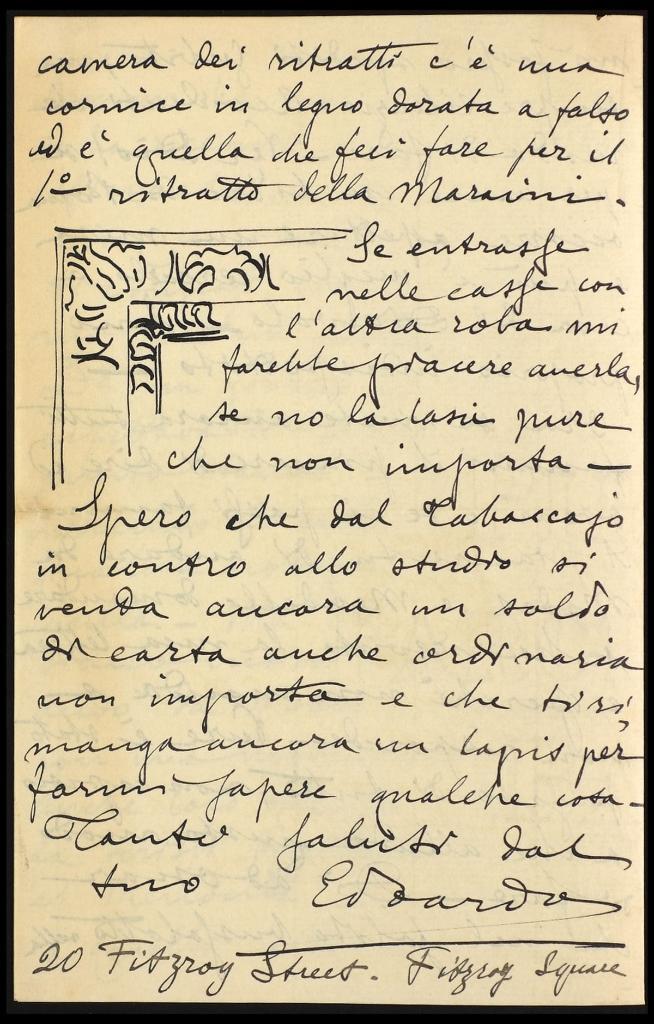 camera dei ritratti c'è una
cornice in legno dorata a falso
ed è quella che feci fare per il
1º ritratto della Maraini.
Se entrasse
nelle casse con
l'altra roba mi
farebbe piacere averla,
se no la lasci pure
che non importa —
Spero che dal Tabaccajo
in contro allo studio si
venda ancora un soldo
di carta anche ordinaria
non importa e che ti ri,
manga ancora un lapis per
farmi sapere qualche cosa —
Tanti saluti dal
tuo Edoardo
20 Fitzroy Street. Fitzroy Square